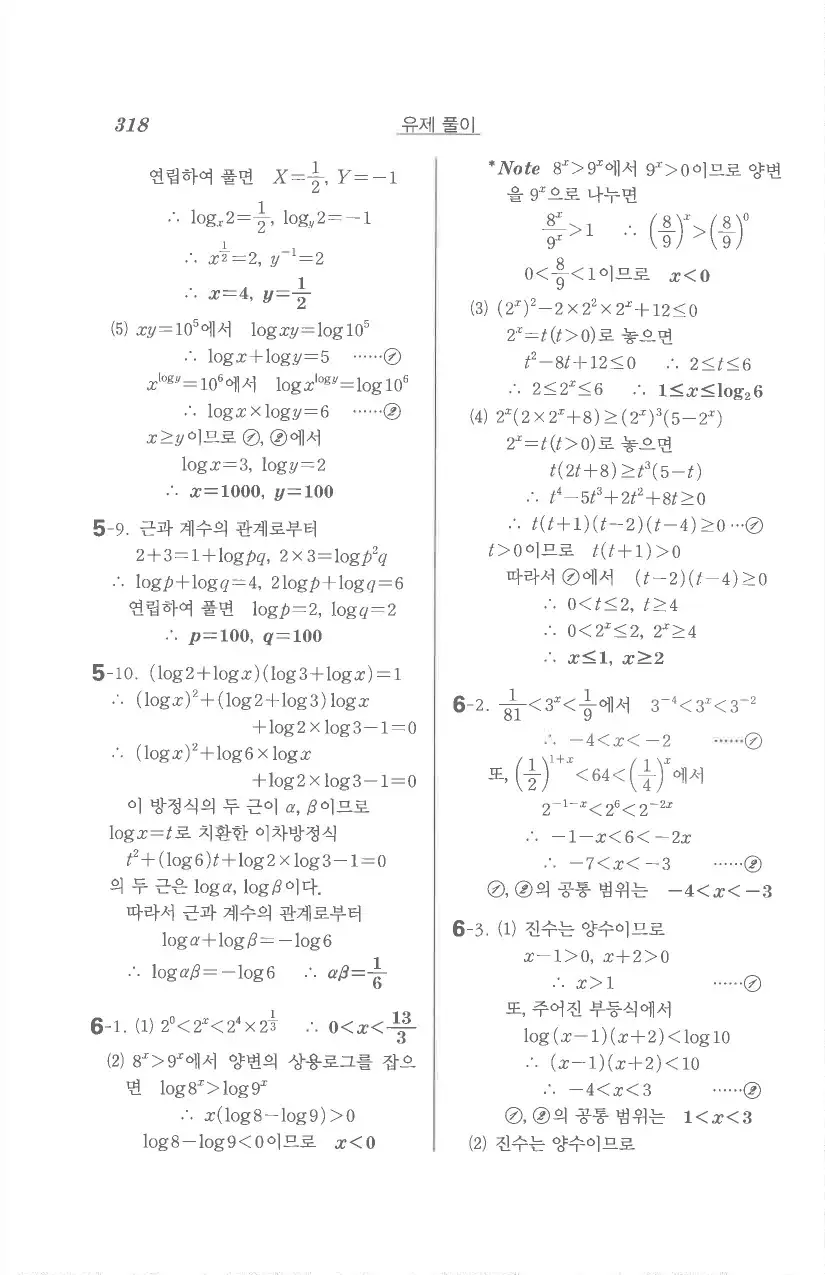 318
유제 풀이
연립하여 풀면 X=1/2, Y=-1
∴ logₓ2=1/2, logᵧ2=-1
∴ x^(1/2)=2, y⁻¹=2
∴ x=4, y=1/2
(5) xy=10⁵에서 logxy=log10⁵
∴ logx+logy=5 ……①
x^(logy)=10⁶에서 logx^(logy)=log10⁶
∴ logx×logy=6 ……②
x≥y이므로 ①, ②에서
logx=3, logy=2
∴ x=1000, y=100
5-9. 근과 계수의 관계로부터
2+3=1+logpq, 2×3=logp²q
∴ logp+logq=4, 2logp+logq=6
연립하여 풀면 logp=2, logq=2
∴ p=100, q=100
5-10. (log2+logx)(log3+logx)=1
∴ (logx)²+(log2+log3)logx
+log2×log3-1=0
∴ (logx)²+log6×logx
+log2×log3-1=0
이 방정식의 두 근이 α, β이므로
logx=t로 치환한 이차방정식
t²+(log6)t+log2×log3-1=0
의 두 근은 logα, logβ이다.
따라서 근과 계수의 관계로부터
logα+logβ=-log6
∴ logαβ=-log6 ∴ αβ=1/6
6-1. (1) 2⁰<2ˣ<2⁴×2^(1/3) ∴ 0<x<13/3
(2) 8ˣ>9ˣ에서 양변의 상용로그를 잡으
면 log8ˣ>log9ˣ
∴ x(log8-log9)>0
log8-log9<0이므로 x<0
*Note 8ˣ>9ˣ에서 9ˣ>0이므로 양변
을 9ˣ으로 나누면
8ˣ/9ˣ>1 ∴ (8/9)ˣ>(8/9)⁰
0<8/9<1이므로 x<0
(3) (2ˣ)²-2×2²×2ˣ+12≤0
2ˣ=t(t>0)로 놓으면
t²-8t+12≤0 ∴ 2≤t≤6
∴ 2≤2ˣ≤6 ∴ 1≤x≤log₂6
(4) 2ˣ(2×2ˣ+8)≥(2ˣ)³(5-2ˣ)
2ˣ=t(t>0)로 놓으면
t(2t+8)≥t³(5-t)
∴ t⁴-5t³+2t²+8t≥0
∴ t(t+1)(t-2)(t-4)≥0 …①
t>0이므로 t(t+1)>0
따라서 ①에서 (t-2)(t-4)≥0
∴ 0<t≤2, t≥4
∴ 0<2ˣ≤2, 2ˣ≥4
∴ x≤1, x≥2
6-2. 1/81<3ˣ<1/9에서 3⁻⁴<3ˣ<3⁻²
∴ -4<x<-2 ……①
또, (1/2)^(1+x)<64<(1/4)ˣ에서
2^(-1-x)<2⁶<2^(-2x)
∴ -1-x<6<-2x
∴ -7<x<-3 ……②
①, ②의 공통 범위는 -4<x<-3
6-3. (1) 진수는 양수이므로
x-1>0, x+2>0
∴ x>1 ……①
또, 주어진 부등식에서
log(x-1)(x+2)<log10
∴ (x-1)(x+2)<10
∴ -4<x<3 ……②
①, ②의 공통 범위는 1<x<3
(2) 진수는 양수이므로